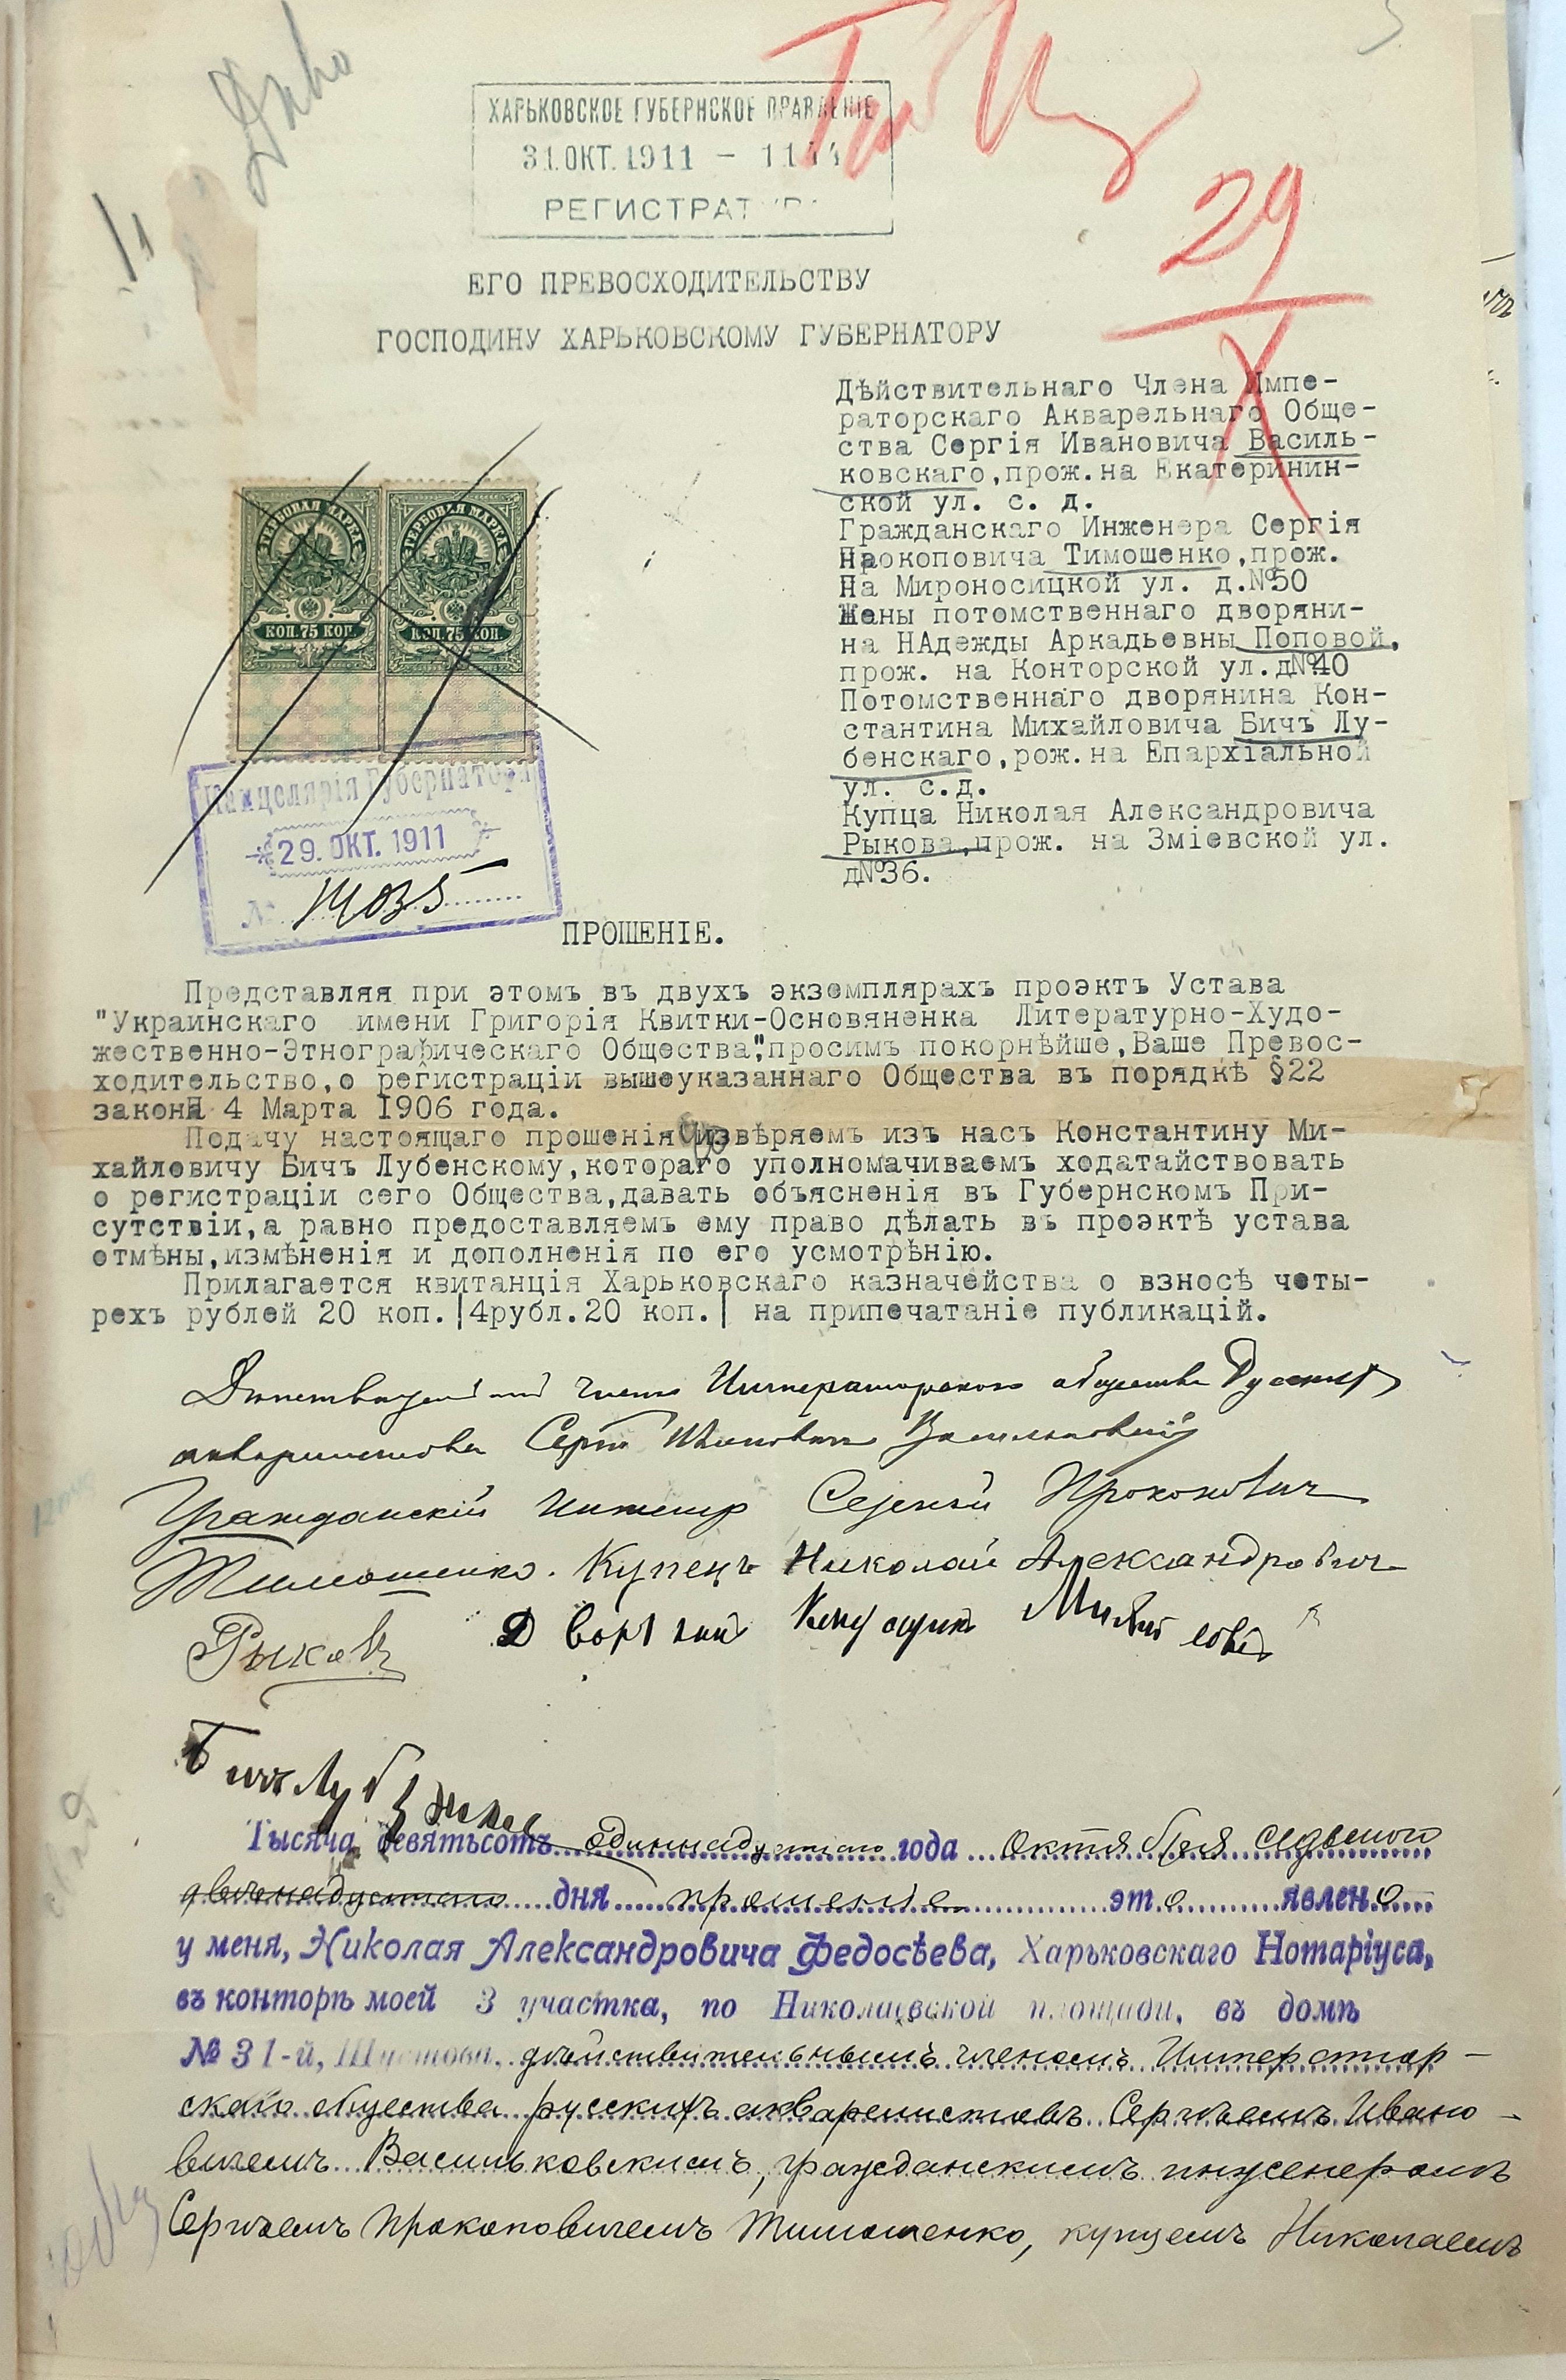 ХАРЬКОВСКОЕ ГУБЕРНСКОЕ ПРАВЛЕНІЕ
31.ОКТ.1911 -
РЕГИСТРАТ
29
X
ЕГО ПРЕВОСХОДИТЕЛЬСТВУ
ГОСПОДИНУ ХАРЬКОВСКОМУ ГУБЕРНАТОРУ
Дѣйствительнаго Члена Импе-
раторскаго Акварельнаго Обще-
ства Сергія Ивановича Василь-
ковскаго,прож.на Екатеринин-
ской ул. с. д.
Гражданскаго Инженера Сергія
Прокоповича Тимошенко,прож.
На Мироносицкой ул. д.№50
Жены потомственнаго дворяни-
на НАдежды Аркадьевны Поповой,
прож. на Конторской ул.д№40
Потомственнаго дворянина Кон-
стантина Михайловича Бичъ Лу-
бенскаго,рож.на Епархіальной
ул. с.д.
Купца Николая Александровича
Рыкова,прож. на Зміевской ул.
д№36.
ГЕРБОВАЯ МАРКА ГЕРБОВАЯ МАРКА
КОП.75 КОП. КОП.75 КОП.
Канцелярія Губернатора
29. ОКТ. 1911
№ 14035
ПРОШЕНІЕ.
Представляя при этомъ въ двухъ экземплярахъ проэктъ Устава
"Украинскаго имени Григорія Квитки-Основяненка Литературно-Худо-
жественно-Этнографическаго Общества",просимъ покорнѣйше,Ваше Превос-
ходительство,о регистраціи вышеуказаннаго Общества въ порядкѣ §22
закона 4 Марта 1906 года.
Подачу настоящаго прошенія ввѣряемъ изъ насъ Константину Ми-
хайловичу Бичъ Лубенскому,котораго уполномачиваемъ ходатайствовать
о регистраціи сего Общества,давать объясненія въ Губернскомъ При-
сутствіи,а равно предоставляемъ ему право дѣлать въ проэктѣ устава
отмѣны,измѣненія и дополненія по его усмотрѣнію.
Прилагается квитанція Харьковскаго казначейства о взносѣ четы-
рехъ рублей 20 коп.|4рубл.20 коп.| на припечатаніе публикацій.
Дѣйствительный членъ Императорскаго общества Русскихъ
акварелистовъ Сергѣй Ивановичъ Васильковскій
Гражданскій Инженеръ Сергѣй Прокоповичъ
Тимошенко. Купецъ Николай Александровичъ
Рыковъ Дворянинъ Константинъ Михайловичъ
Бичъ Лубенскій
Тысяча девятьсотъ одиннадцатаго года октября седьмого
двенадцатаго дня прошеніе это явлено
у меня, Николая Александровича Федосѣева, Харьковскаго Нотаріуса,
въ конторѣ моей 3 участка, по Николаевской площади, въ домѣ
№ 31-й, дѣйствительнымъ членомъ Император-
скаго общества русскихъ акварелистовъ Сергѣемъ Ивано-
вичемъ Васильковскимъ, гражданскимъ инженеромъ
Сергѣемъ Прокоповичемъ Тимошенко, купцемъ Николаемъ